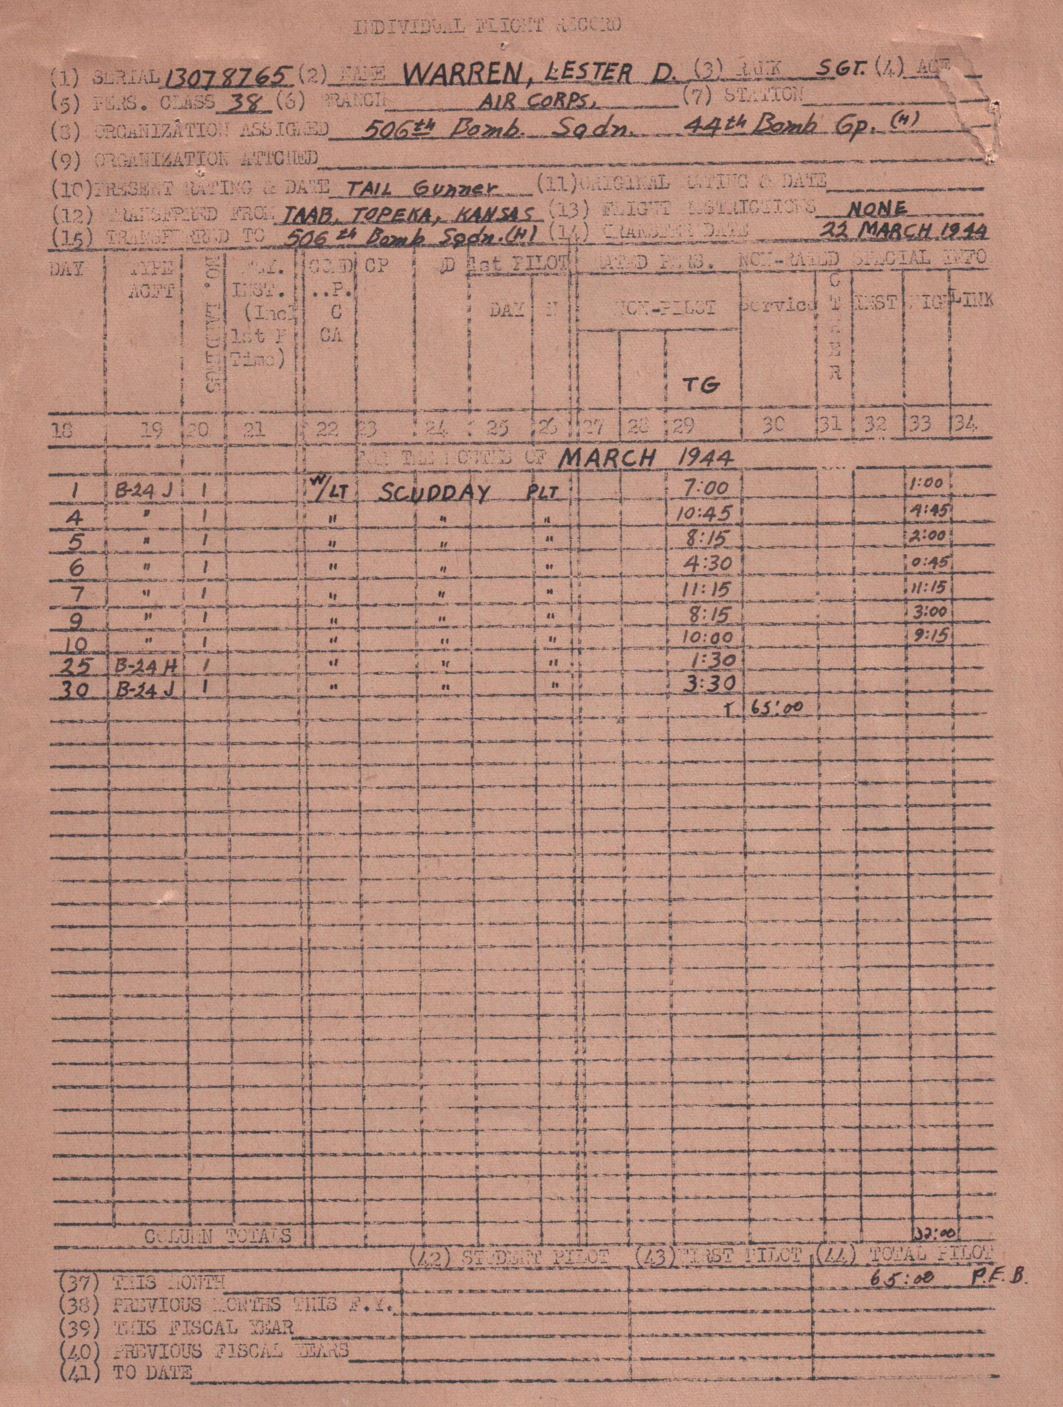 INDIVIDUAL FLIGHT RECORD
(1) SERIAL 13078765 (2) NAME WARREN, LESTER D. (3) RANK SGT. (4) AGE
(5) PERS. CLASS 38 (6) BRANCH AIR CORPS. (7) STATION
(8) ORGANIZATION ASSIGNED 506th Bomb. Sqdn. 44th Bomb Gp. (H)
(9) ORGANIZATION ATTCHED
(10) PRESENT RATING & DATE TAIL Gunner (11) ORIGINAL RATING & DATE
(12) TRANSFRRED FROM TAAB, TOPEKA, KANSAS (13) FLIGHT RSTRICTIONS NONE
(15) TRANSFERRED TO 506th Bomb Sqdn. (H) (14) TRANSFER DATE 22 MARCH 1944
DAY TYPE NO. LANDINGS INST. CP 1st PILOT RATED PERS. NON-RATED SPECIAL INFO
ACFT (Incl P. C DAY N NON-PILOT Service OTHER INST LINK
1st P CA
Time)
TG
18 19 20 21 22 23 24 25 26 27 28 29 30 31 32 33 34
MONTH OF MARCH 1944
1 B-24 J 1 W/LT SCUDDAY PLT 7:00 1:00
4 " 1 " " " 10:45 4:45
5 " 1 " " " 8:15 2:00
6 " 1 " " " 4:30 0:45
7 " 1 " " " 11:15 11:15
9 " 1 " " " 8:15 3:00
10 " 1 " " " 10:00 9:15
25 B-24 H 1 " " " 1:30
30 B-24 J 1 " " " 3:30
T. 65:00
COLUMN TOTALS 32:00
(42) STUDENT PILOT (43) FIRST PILOT (44) TOTAL PILOT
(37) THIS MONTH 65:00 P.E.B.
(38) PREVIOUS MONTHS THIS F.Y.
(39) THIS FISCAL YEAR
(40) PREVIOUS FISCAL YEARS
(41) TO DATE